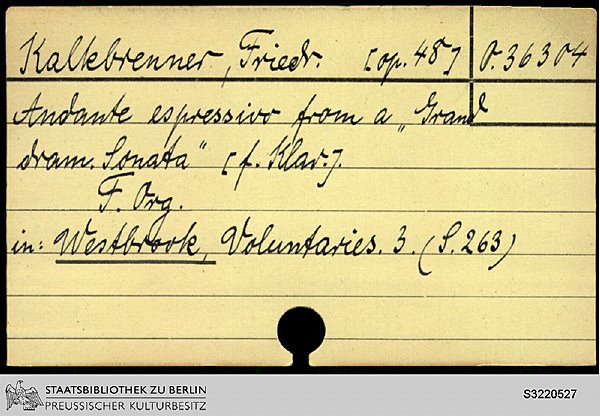 Kalkbrenner, Friedr. [op. 48] O. 36304
Andante espressivo from a „Grand
dram. Sonata“ [f. Klav.].
F. Org.
in: Westbrook, Voluntaries. 3. (S. 263)
STAATSBIBLIOTHEK ZU BERLIN
PREUSSISCHER KULTURBESITZ
S3220527